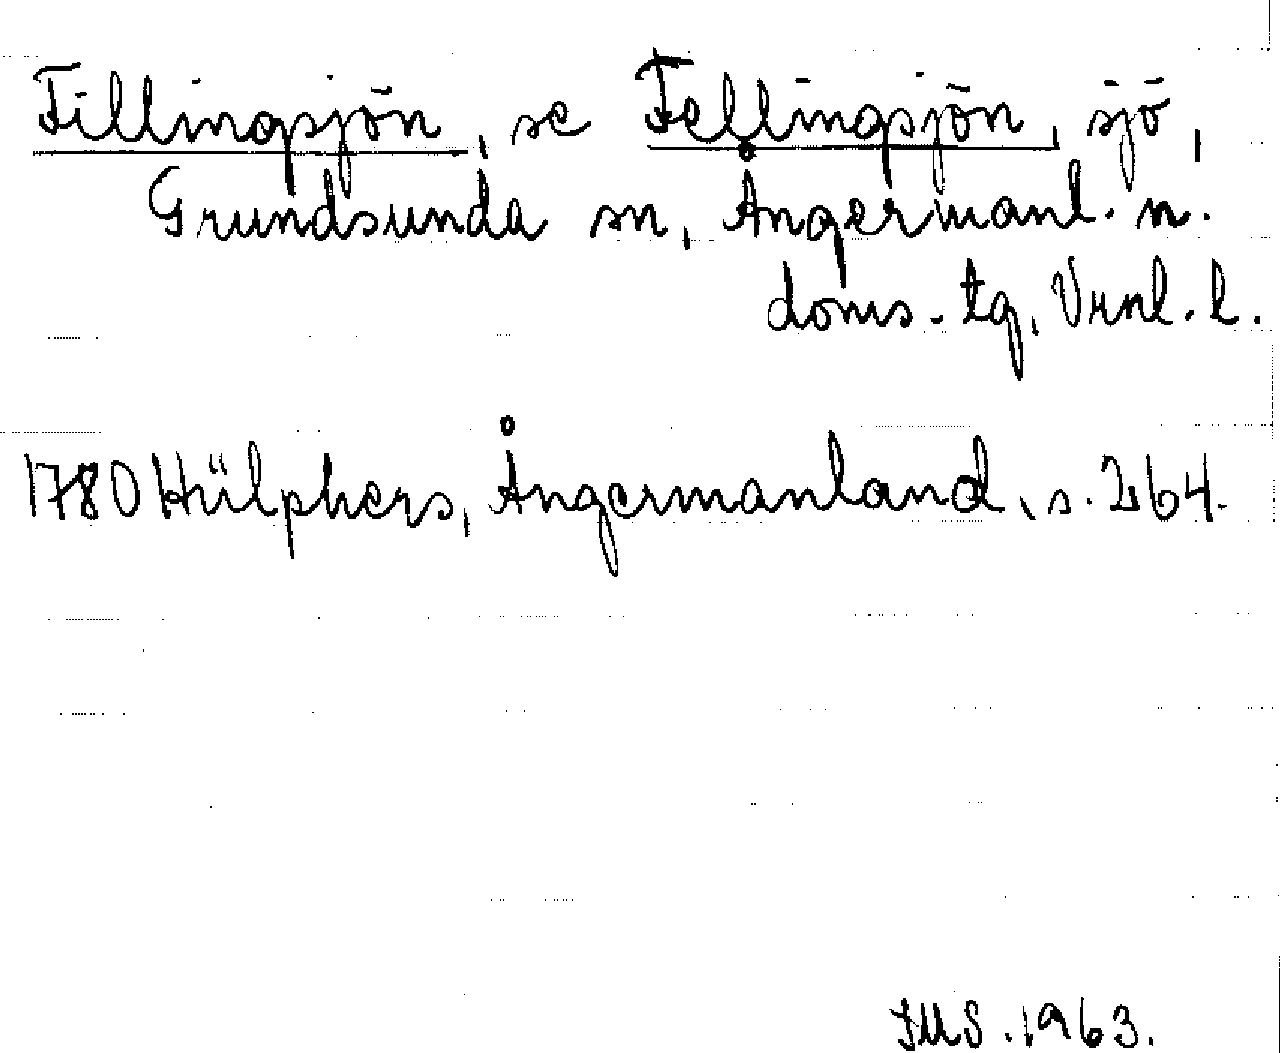 Fillingsjön, se Fellingsjön, sjö,
Grundsunda sn, Ångermanl. n.
doms. tg, Vrnl. l.
1780 Hülphers, Ångermanland, s. 264.
SMS. 1963.